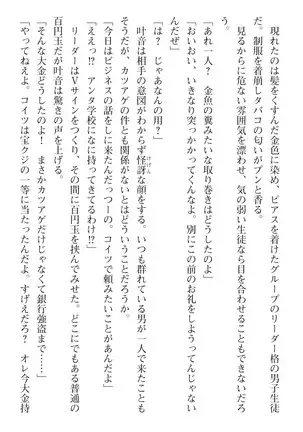 現れたのは髪をくすんだ金色に染め、ピアスを着けたグループのリーダー格の男子生徒
だ。制服を着崩しタバコの匂いがプンと香る。
見るからに危ない雰囲気を漂わせ、気の弱い生徒なら目を合わせることもできないだろ
う。
「あれ一人？　金魚の糞みたいな取り巻きはどうしたのよ」
「おいおい、いきなり突っかかってくんなよ。別にこの前のお礼をしようってんじゃない
んだぜ」
「は？　じゃあなんの用？」
叶音は相手の意図がわからず怪訝な顔をする。いつも群れている男が一人で来たことも
そうだが、カツアゲの件とも関係がないとはどういうことだろうか。
「今日はビジネスの話をしに来たんだっつーの。コイツで頼みたいことがあんだよ」
「ええっ!?　アンタ学校になに持ってきてるわけ!?」
リーダーはＶサインをつくり、その間に百円玉を挟んでみせた。どこにでもある普通の
百円玉だが叶音は驚きの声を上げる。
「そんな大金どうしたのよ！　まさかカツアゲだけじゃなくて銀行強盗まで……」
「やってねえよ。コイツは宝クジの一等に当たったんだよ。すげえだろ？　オレ今大金持